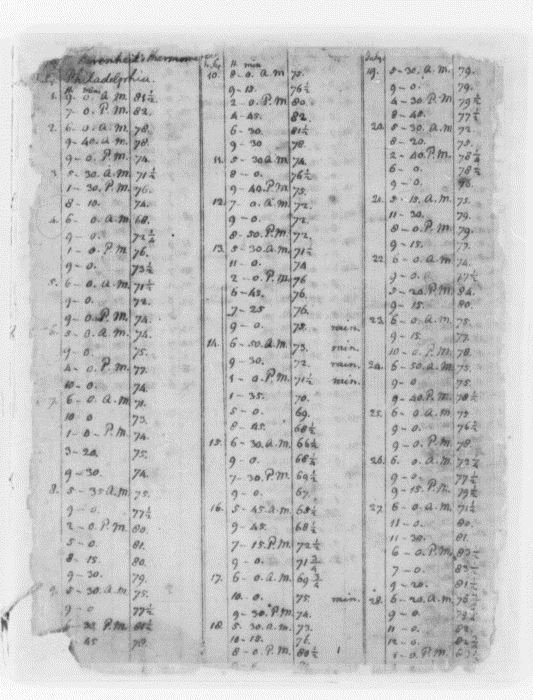 Philadelphia.
H. min
1. 9-0. A.M. 81½
7-0. P.M. 82.
2. 6-0. A.M. 78.
9-40. A.M. 78.
9-0. P.M. 74.
3. 5-30. A.M. 71½
1-30. P.M. 76.
8-10. 74.
4. 6-0. A.M. 68.
9-0. 72¼
1-0. P.M. 76.
9-0. 73½
5. 6-0. A.M. 71½
9-0. 72.
9-0. P.M. 74.
5-0. A.M. 74.
9-0. 75.
4-0. P.M. 77.
10-0. 74.
7. 6-0. A.M.
10-0 73.
1-0-P.M. 74.
3-20. 75.
9-30. 74.
8. 5-35 A.M. 75.
9-0. 77½
2-0. P.M. 80.
5-0. 81.
8-15. 80.
9-30. 79.
9. 5-30. A.M. 75.
9-0 77½
6-30 P.M. 81½
45 79
H. min
10. 8-0. A.M 75.
9-15. 76½
2-0. P.M. 80.
4-45. 82.
6-30. 81½
9-30 78.
11. 5-30 A.M 74.
8-0. 76½
9-40 P.M. 75.
12. 7-0. A.M 72.
9-0. 72.
8-50. P.M. 72.
13. 5-30 A.M. 71½
11-0. 74
2-0. P.M 76
6-45. 76.
7-25 76.
9-0. 75. rain.
14. 6-50. A.M. 73. rain.
9-30. 72. rain.
1-0. P.M. 71½ rain.
1-35. 70.
5-0. 69.
8-45. 68½
15. 6-30. A.M. 66¼
9-0. 68¼
7-30. P.M. 69¼
9-0. 67.
16. 5-45. A.M. 65½
9-45. 68½
7-15. P.M. 72½
9-0. 71¾
17. 6-0. A.M. 69¾
10-0. 75. rain.
9-30. P.M. 74.
18. 5-30. A.M. 73.
10-15. 76.
8-0. P.M. 80½
19. 5-30. A.M. 79.
9-0. 79.
4-30 P.M 79½
8-45. 77½
20. 5-30. A.M 72.
8-20. 75.
2-40. P.M. 78¼
6-0. 78½
9-0.
21. 5-15. A.M. 75.
11-30. 79.
8-0. P.M. 79.
9-15. 77.
22. 6-0. A.M 74.
9-0. 77½
5-20. P.M. 84.
9-15. 80.
23. 6-0. A.M. 75.
9-15. 77.
10-0. P.M. 78.
24. 6-50. A.M 75
9-0 75.
9-40. P.M.
25. 6-0. A.M 75
9-0. 76½
9-0. P.M. 78.
26. 6. 0. A.M.
9-0. 77½
9-15. P.M. 79½
27. 6-0. A.M. 71½
11-0. 80.
11-30. 81.
6-0. P.M.
7-0.
9-20. 81½
28. 6-20. A.M. 76½
9-0.
11-0. 82.
12-0.